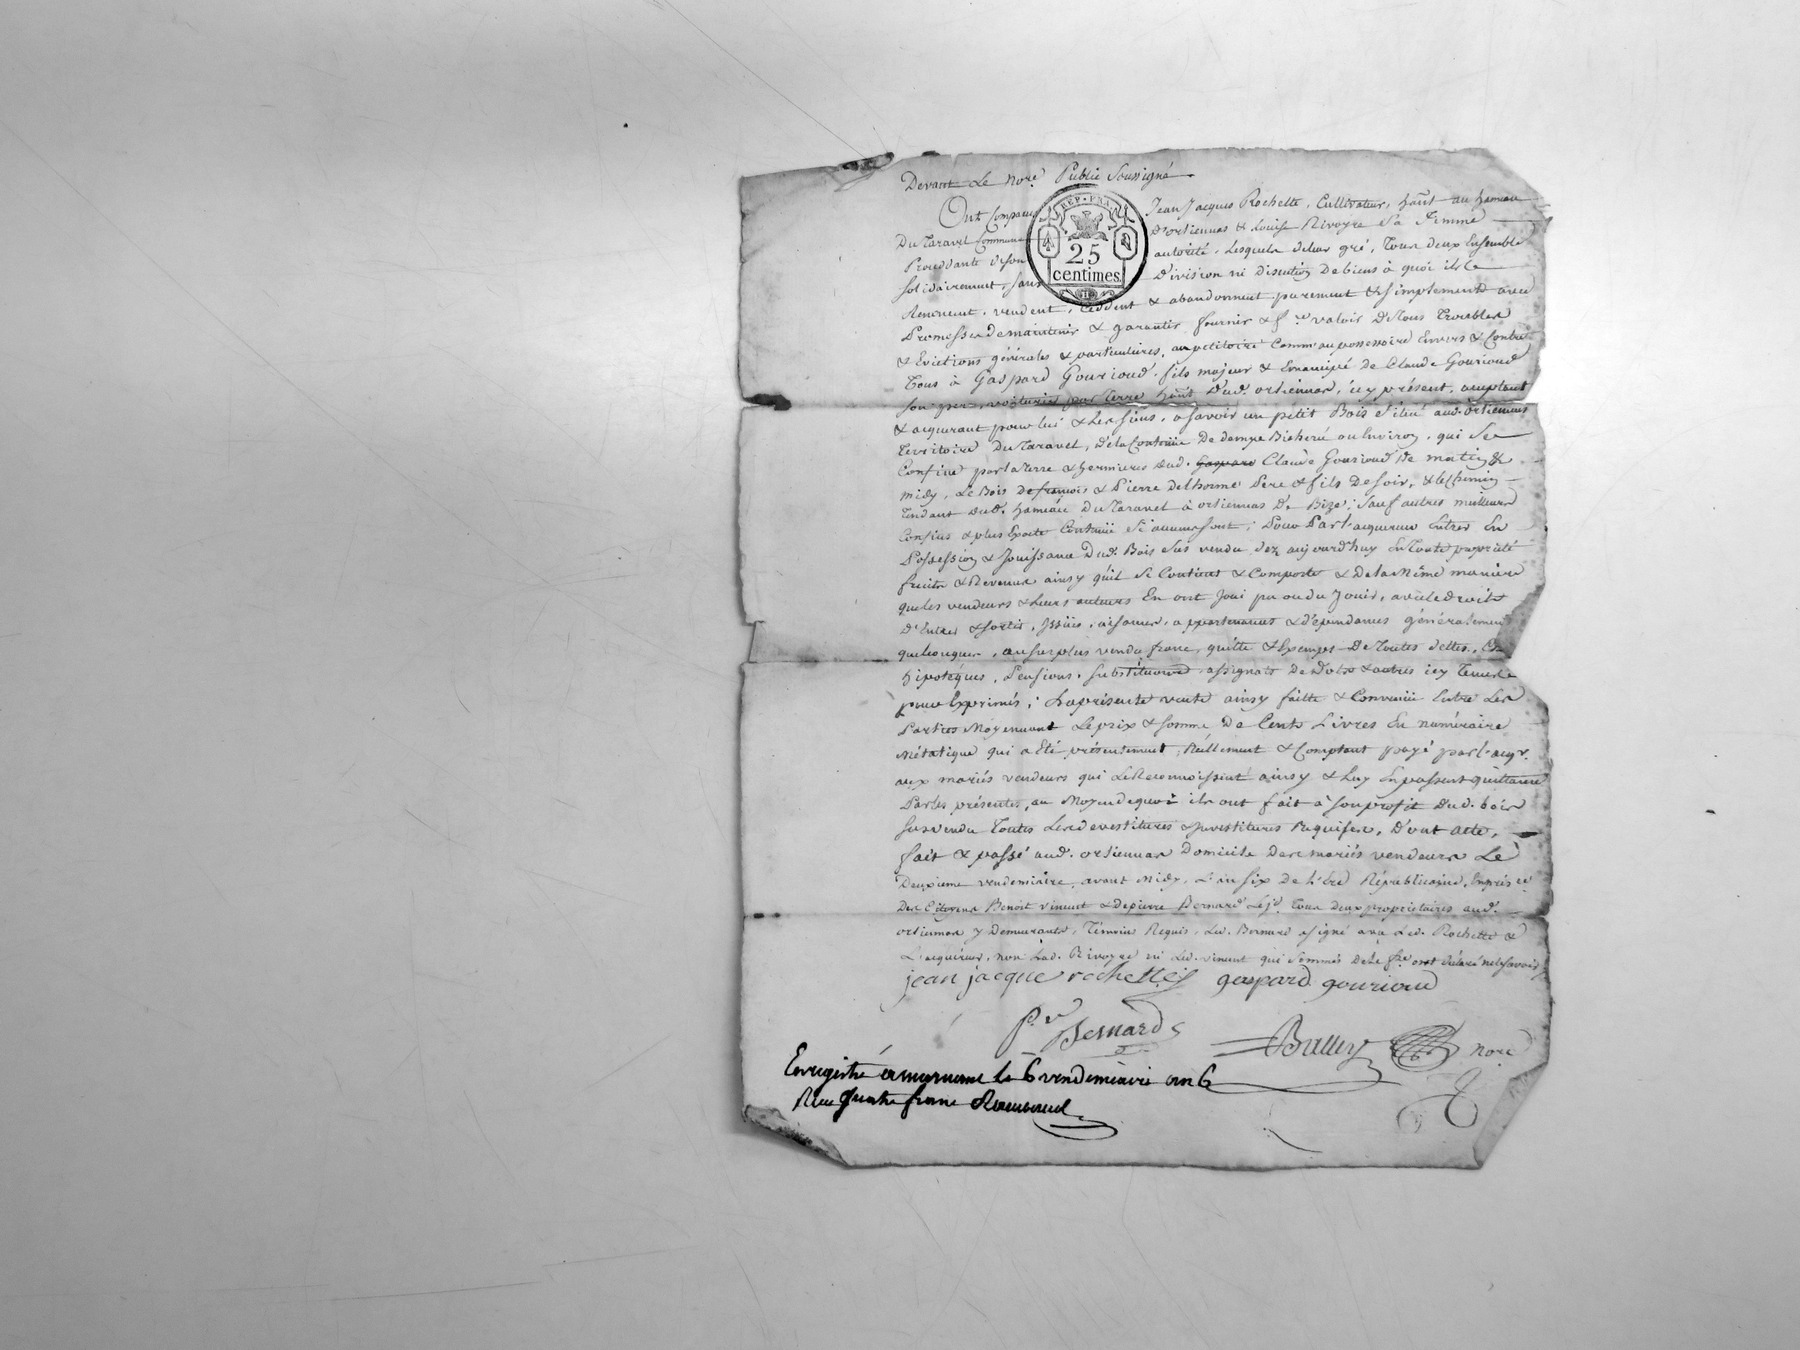 Devant Le Nore Public Soussigné
REP. FRA.
25
centimes.
Ont Comparu Jean Jacques Rochette, Cultivateur, hãnt au hameau
Du Taravel Commune D'ortiennas & Louise Rivoyre Sa femme
Procédante de son autorité, Lesquels de leur gré, Tous deux Ensemble
Solidairement, sans Division ni Discution De biens à quoi ils
Renoncent, vendent, Cèddent & abandonnent purement & simplement avec
Promesse de maintenir & garantir fournir & fre valoir De Tous Troubles
& Evictions générales & particulieres, au petitoire Comm' au possessoire Envers & Contre
Tous à Gaspard Gourioud, fils majeur & Emancipé de Claude Gourioud
Son pere, voiturier par Terre hãnt Dud. ortiennas, icy présent, acceptant
& acquerant pour lui & Les siens, asavoir un petit Bois situé aud. ortiennas
Territoire Du Taravel, De la Contenüe De demye Bicherée ou Environ, qui Se
Confine par la Terre & hermieres Dud. Claude Gourioud De matin &
midy, Le Bois De françois & Pierre Delhorme Pere & fils De soir, & le Chemin
Tendant Dud. hameau Du Taravel à ortiennas De Bize; Sauf autres meilleurs
Confins & plus Exacte Contenüe Si aucuns sont; Pour Par l'acquereur Entrer En
Possession & Jouissance Dud. Bois Sus vendu dez aujourd'huy En Toute propriété
fruits & Revenus ainsy qu'il Se Contient & Comporte & De la Même maniere
que les vendeurs & Leurs auteurs En ont Joui pu ou du Jouir, avec le droit
D'Entrer & sortir, Issües, aisances, appartenances & dépendances généralement
quelconques, au surplus vendu franc, quitte & Exempt De Toutes dettes,
hipotéques, Pensions, Substitutions, assignats De Dots & autres icy Tenus
pour Exprimés; La présente vente ainsy faitte & Convenüe Entre Les
Parties Moyennant Le prix & somme De Cents Livres En numéraire
Métalique qui a Eté présentement, Réellement & Comptant payé par l'acqr.
aux mariés vendeurs qui Le Reconnoissent ainsy & Luy En passent quittance
Par les présentes, au Moyen de quoi ils ont fait à Son profit Dud. bois
Sus vendu Toutes Les devestitures & Investitures Requises, D'ont acte,
fait & passé aud. ortiennas Domicile Des mariés vendeurs Le
Deuxieme vendemiaire, avant Midy, L'an Six De l'Ere Républicaine, En présence
Des Citoyens Benoit vincent & De pierre Bernard Le je. Tous Deux propriétaires aud.
ortiennas y Demeurants, Témoins Requis, Led. Bernard a signé avec Led. Rochette &
L'acquéreur, non Lad. Rivoyre ni Led. vincent qui Sommés De Le fre ont déclaré ne le Savoir
jean jacque rochette gaspard gourioud
Pre Bernard
Nore
Enregistré a le 6 vendemiaire an 6
Reçu quatre franc